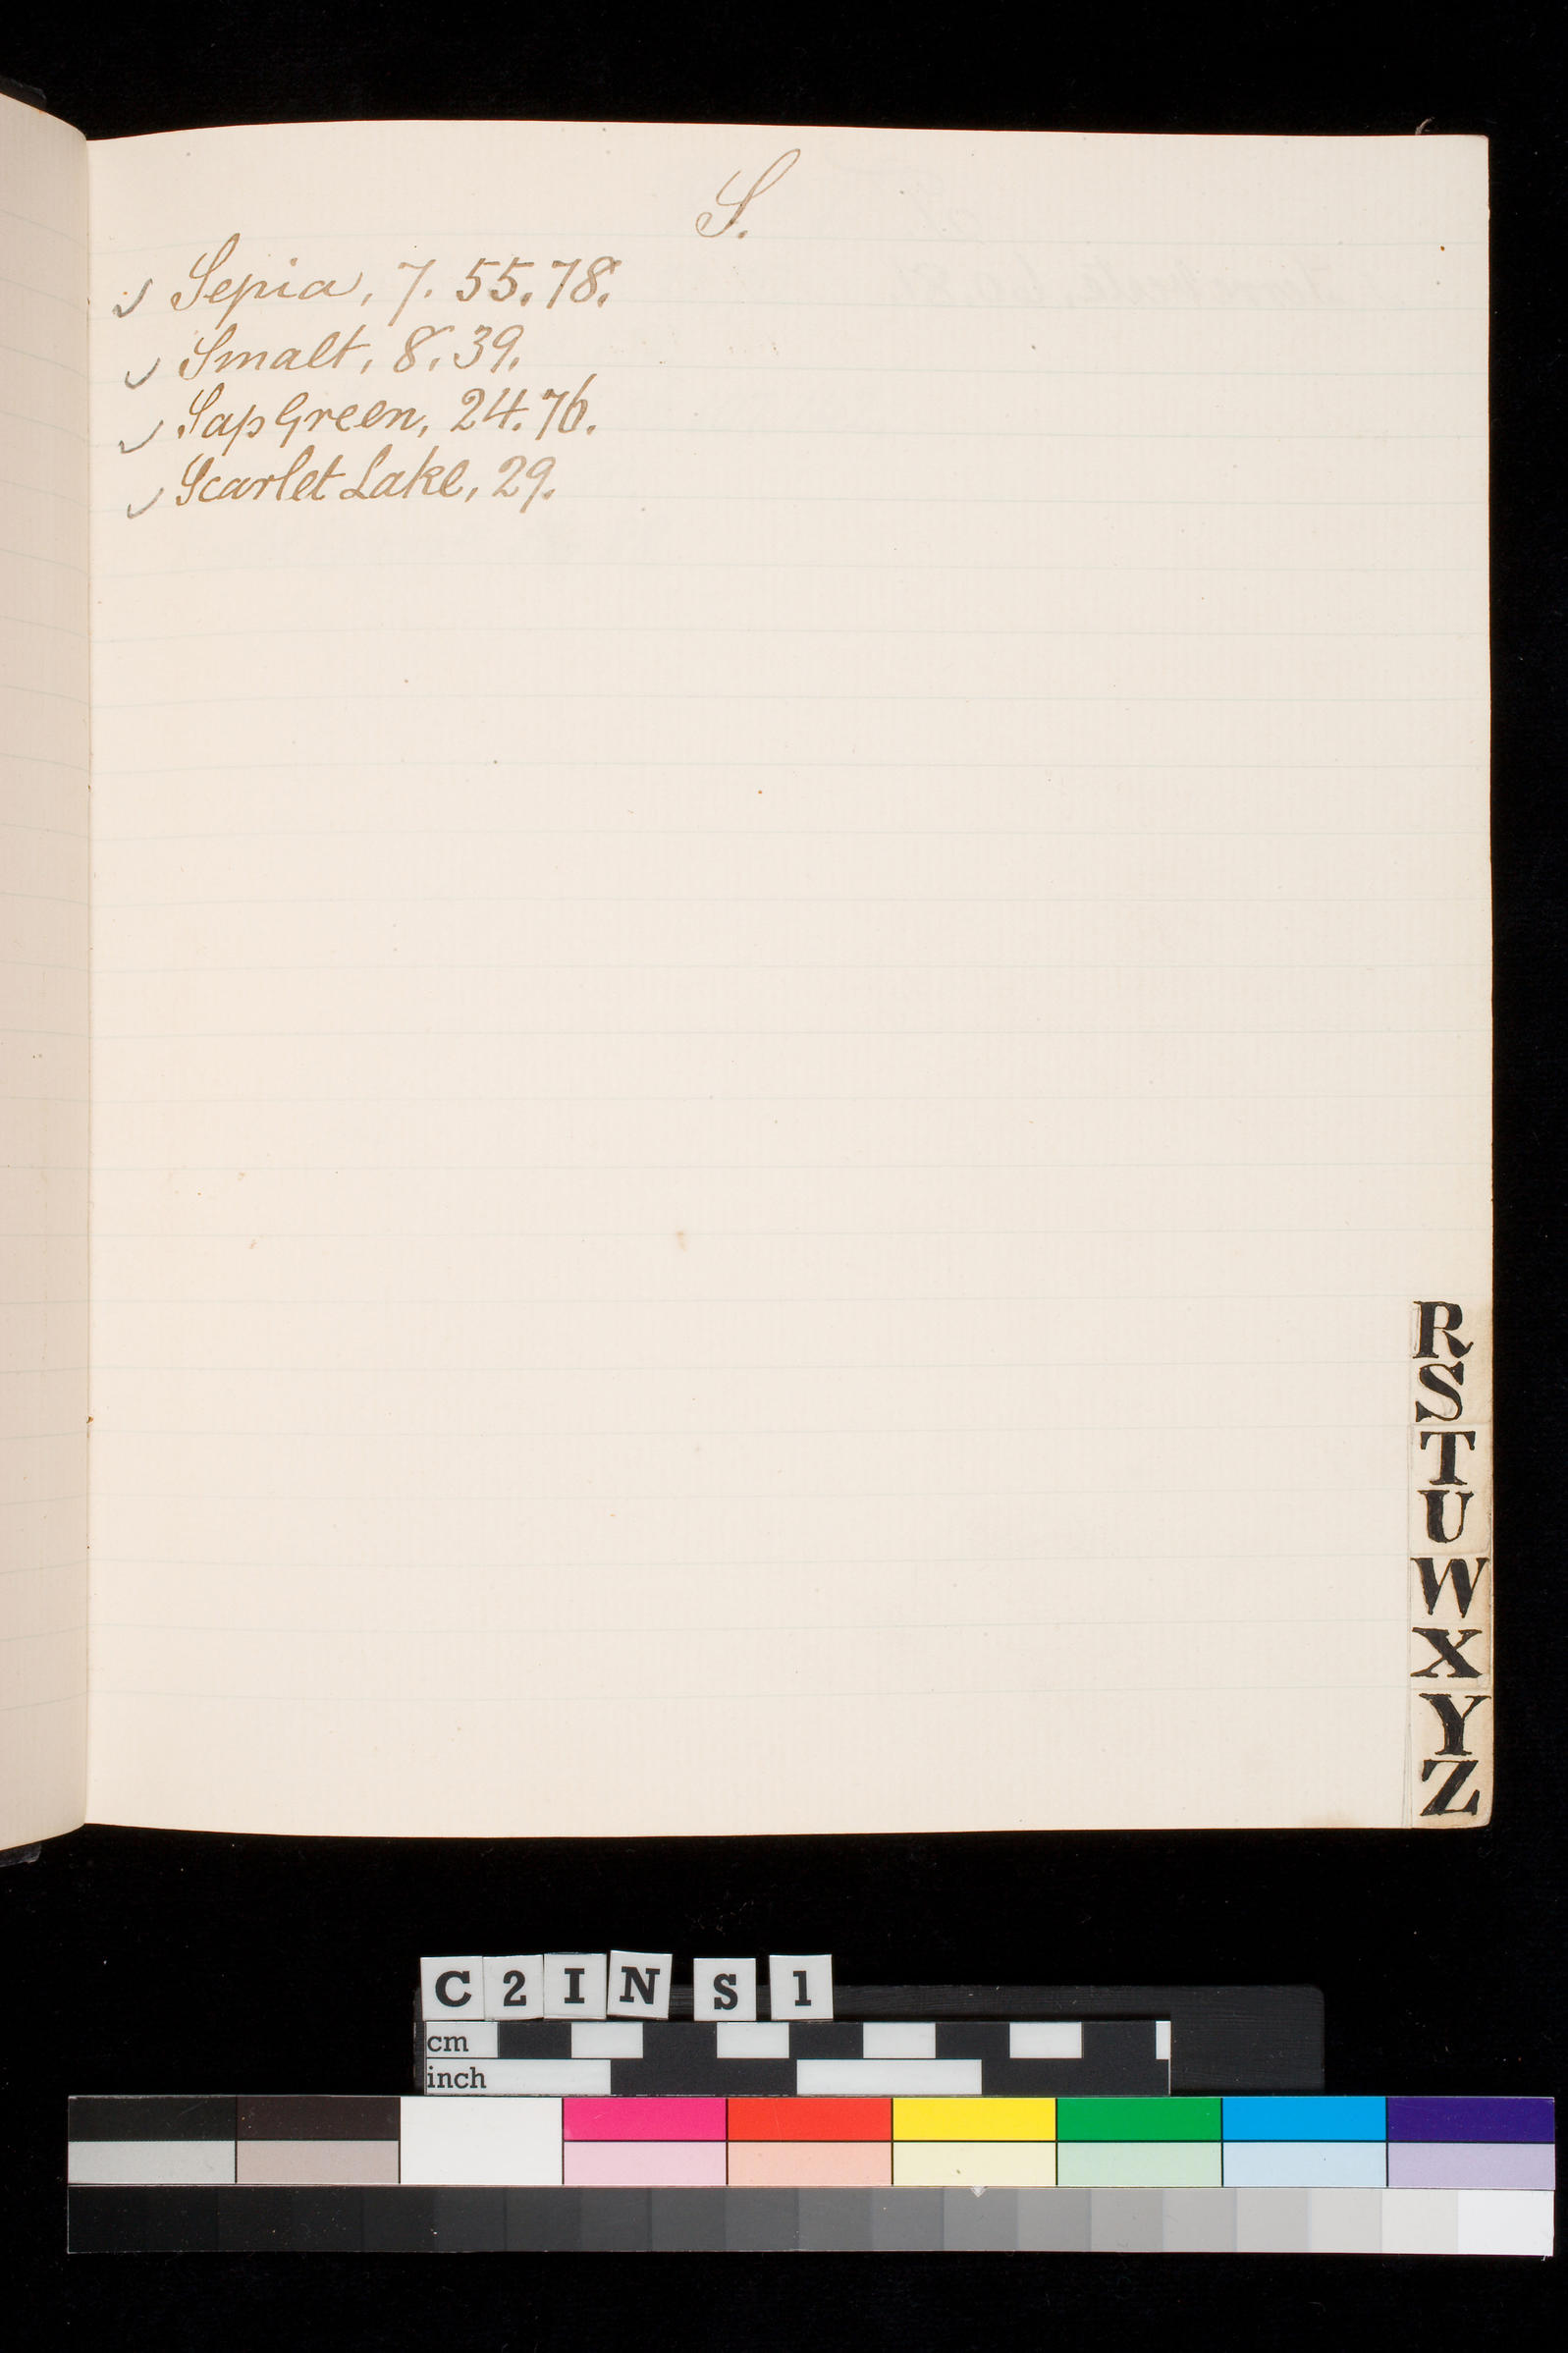 S.
✓ Sepia, 7. 55. 78.
✓ Smalt, 8. 39.
✓ Sap Green, 24. 76.
✓ Scarlet Lake, 29.
R
S
T
U
W
X
Y
Z
C2IN S 1
cm
inch